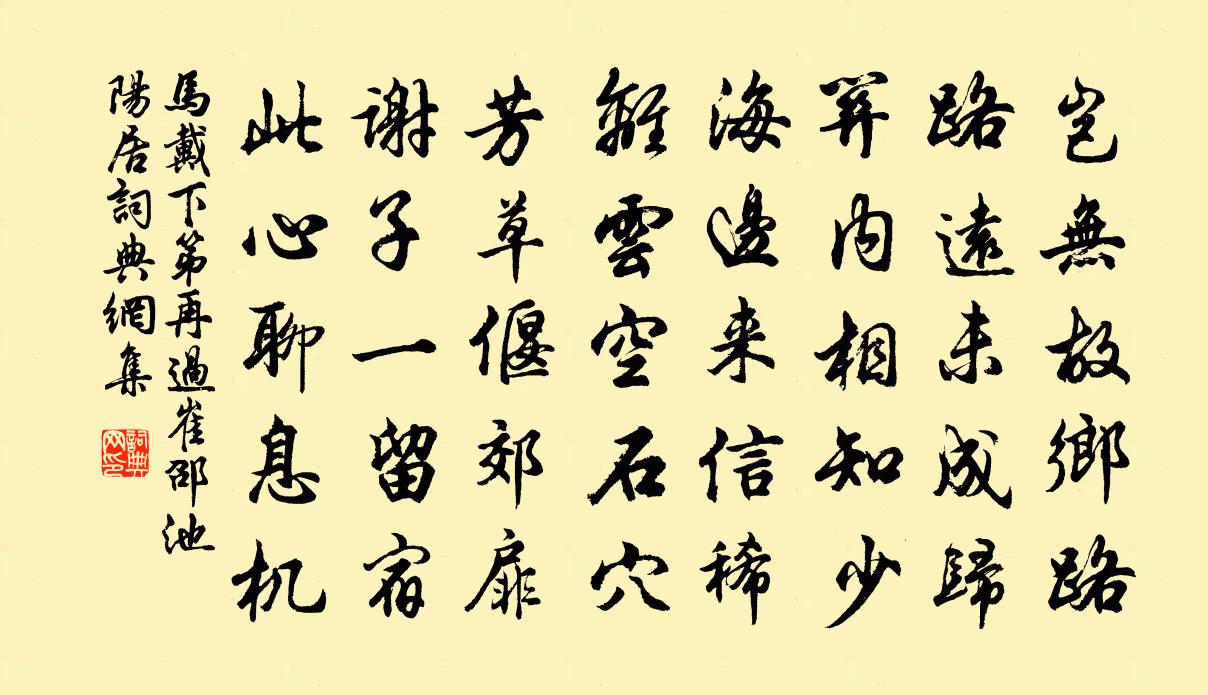 岂無故鄉路
路遠未成歸
関内相知少
海邊来信稀
離雲空石穴
芳草偃郊扉
謝子一留宿
此心聊息机
馬戴下第再過崔邵池
陽居詞典網集
詞典网印